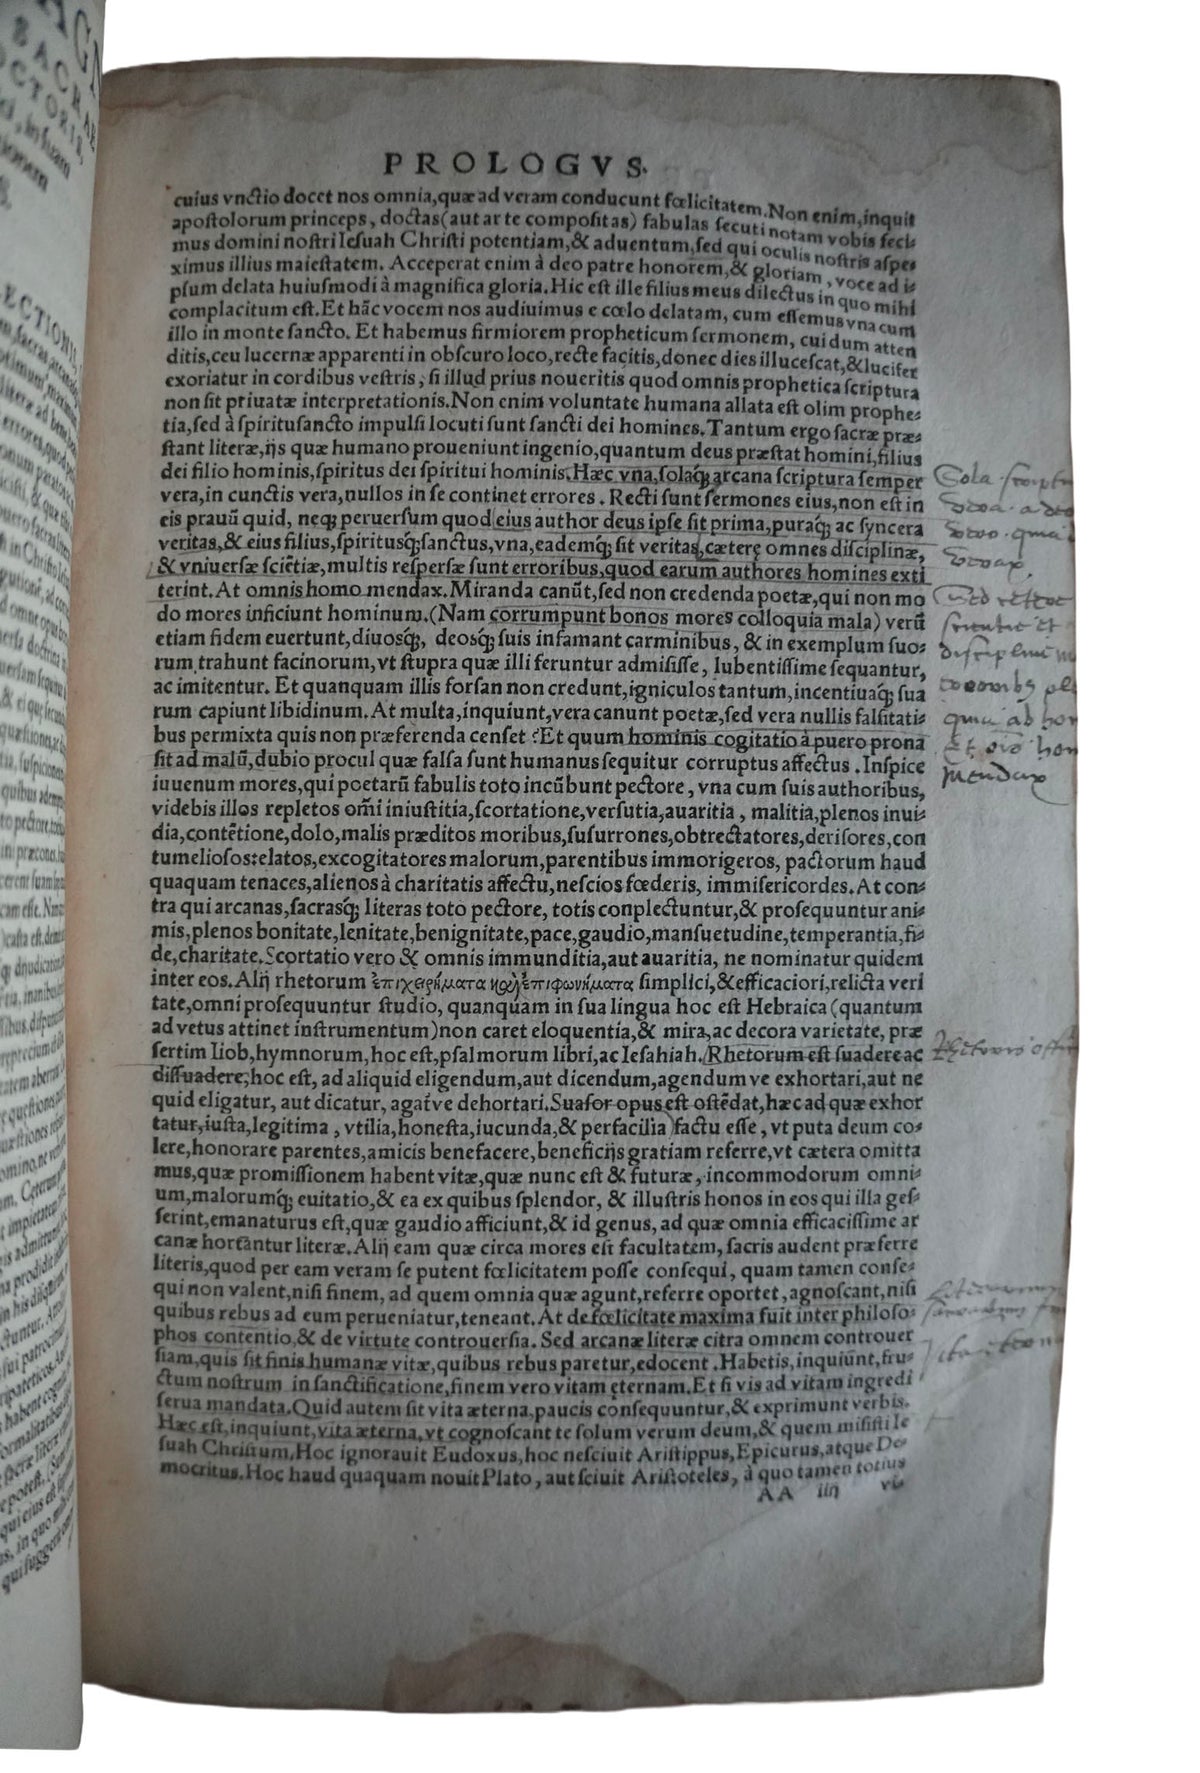 PROLOGVS.
cuius vnctio docet nos omnia,quæ ad veram conducunt fœlicitatem.Non enim,inquit
apostolorum princeps, doctas(aut arte compositas) fabulas secuti notam vobis feci⸗
mus domini nostri Iesuah Christi potentiam,& aduentum,sed qui oculis nostris aspe⸗
ximus illius maiestatem. Acceperat enim à deo patre honorem,& gloriam, voce ad i⸗
psum delata huiusmodi à magnifica gloria. Hic est ille filius meus dilectus in quo mihi
complacitum est.Et hāc vocem nos audiuimus e cœlo delatam, cum essemus vna cum
illo in monte sancto. Et habemus firmiorem propheticum sermonem, cui dum atten
ditis,ceu lucernæ apparenti in obscuro loco,recte facitis,donec dies illucescat,&lucifer
exoriatur in cordibus vestris, si illud prius noueritis quod omnis prophetica scriptura
non sit priuatæ interpretationis.Non enim voluntate humana allata est olim prophe⸗
tia,sed à spiritusancto impulsi locuti sunt sancti dei homines. Tantum ergo sacræ præ⸗
stant literæ,ijs quæ humano proueniunt ingenio,quantum deus præstat homini,filius
dei filio hominis,spiritus dei spiritui hominis.Hæc vna,solaq; arcana scriptura semper
vera,in cunctis vera,nullos in se continet errores. Recti sunt sermones eius,non est in
eis prauū quid, neq; peruersum quod eius author deus ipse sit prima,puraq; ac syncera
veritas,& eius filius,spiritusq;sanctus,vna,eademq; sit veritas,cæterę omnes disciplinæ,
& vniuersæ sciētiæ,multis respersæ sunt erroribus,quod earum authores homines exti
terint. At omnis homo mendax. Miranda canūt,sed non credenda poetæ,qui non mo
do mores inficiunt hominum.(Nam corrumpunt bonos mores colloquia mala) verū
etiam fidem euertunt,diuosq;, deosq; suis infamant carminibus, & in exemplum suo⸗
rum trahunt facinorum,vt stupra quæ illi feruntur admisisse, lubentissime sequantur,
ac imitentur. Et quanquam illis forsan non credunt,igniculos tantum,incentiuaq; sua
rum capiunt libidinum. At multa,inquiunt,vera canunt poetæ,sed vera nullis falsitati⸗
bus permixta quis non præferenda censet ?Et quum hominis cogitatio à puero prona
sit ad malū,dubio procul quæ falsa sunt humanus sequitur corruptus affectus . Inspice
iuuenum mores,qui poetarū fabulis toto incūbunt pectore, vna cum suis authoribus,
videbis illos repletos om̄i iniustitia,scortatione,versutia,auaritia, malitia,plenos inui⸗
dia,contētione,dolo,malis præditos moribus,susurrones,obtrectatores,derisores,con
tumeliosos:elatos,excogitatores malorum,parentibus immorigeros, pactorum haud
quaquam tenaces,alienos à charitatis affectu,nescios fœderis, immisericordes. At con⸗
tra qui arcanas,sacrasq; literas toto pectore, totis conplectuntur,& prosequuntur ani⸗
mis,plenos bonitate,lenitate,benignitate,pace,gaudio,mansuetudine,temperantia,fi⸗
de,charitate.Scortatio vero & omnis immunditia,aut auaritia, ne nominatur quidem
inter eos. Alij rhetorum ἐπιχειρήματα καὶ ἐπιφωνήματα simplici,&efficaciori,relicta veri
tate,omni prosequuntur studio, quanquam in sua lingua hoc est Hebraica (quantum
ad vetus attinet instrumentum)non caret eloquentia,& mira,ac decora varietate, præ
sertim Iiob,hymnorum,hoc est,psalmorum libri,ac Iesahiah. Rhetorum est suadere ac
dissuadere;hoc est, ad aliquid eligendum,aut dicendum,agendum ve exhortari,aut ne
quid eligatur, aut dicatur, agatve dehortari.Suasor opus est ostēdat,hæc ad quæ exhor
tatur,iusta,legitima , vtilia,honesta,iucunda,& perfacilia factu esse, vt puta deum co⸗
lere,honorare parentes,amicis benefacere,beneficijs gratiam referre,vt cætera omitta
mus,quæ promissionem habent vitæ,quæ nunc est & futuræ, incommodorum omni⸗
um,malorumq; euitatio,& ea ex quibus splendor, & illustris honos in eos qui illa ges⸗
serint,emanaturus est,quæ gaudio afficiunt,& id genus, ad quæ omnia efficacissime ar
canæ hortantur literæ. Alij eam quæ circa mores est facultatem, sacris audent præferre
literis,quod per eam veram se putent fœlicitatem posse consequi, quam tamen conse⸗
qui non valent,nisi finem, ad quem omnia quæ agunt,referre oportet, agnoscant,nisi
quibus rebus ad eum perueniatur,teneant. At de fœlicitate maxima fuit inter philoso⸗
phos contentio,& de virtute controuersia. Sed arcanæ literæ citra omnem controuer
siam,quis sit finis humanæ vitæ,quibus rebus paretur,edocent . Habetis,inquiunt,fru⸗
ctum nostrum in sanctificatione,finem vero vitam ęternam. Et si vis ad vitam ingredi
serua mandata. Quid autem sit vita æterna,paucis consequuntur,& exprimunt verbis.
Hæc est,inquiunt,vita æterna,vt cognoscant te solum verum deum,& quem misisti Ie
suah Christum. Hoc ignorauit Eudoxus, hoc nesciuit Aristippus, Epicurus,atque De⸗
mocritus.Hoc haud quaquam nouit Plato, aut sciuit Aristoteles, à quo tamen totius
AA iiij vi⸗
Sola
quia
disciplinę
quia ab hom
mendax